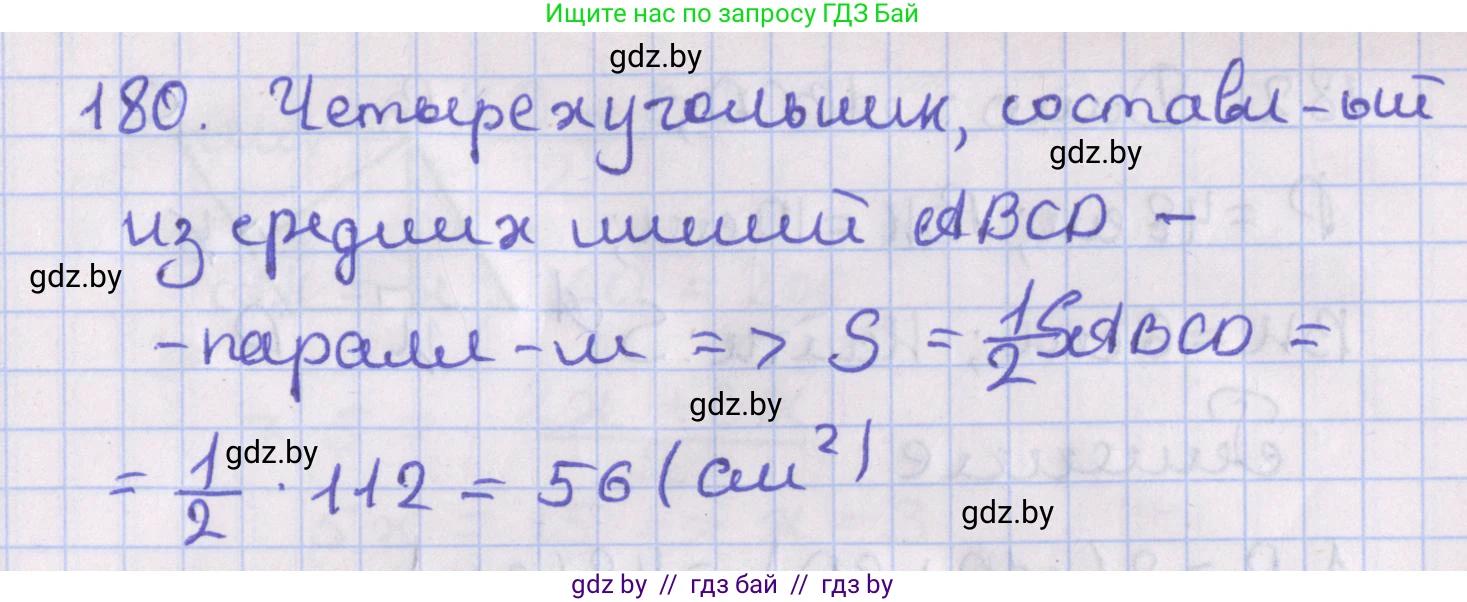 Ищите нас по запросу ГДЗ Бай
gdz.by
180. Четырехугольник, составл-ый
gdz.by
из средних линий ABCD -
gdz.by
- паралл-м => S = 1/2 SABCD =
gdz.by
= 1/2 · 112 = 56 (см²)
gdz.by
gdz.by
gdz.by // гдз бай // гдз by